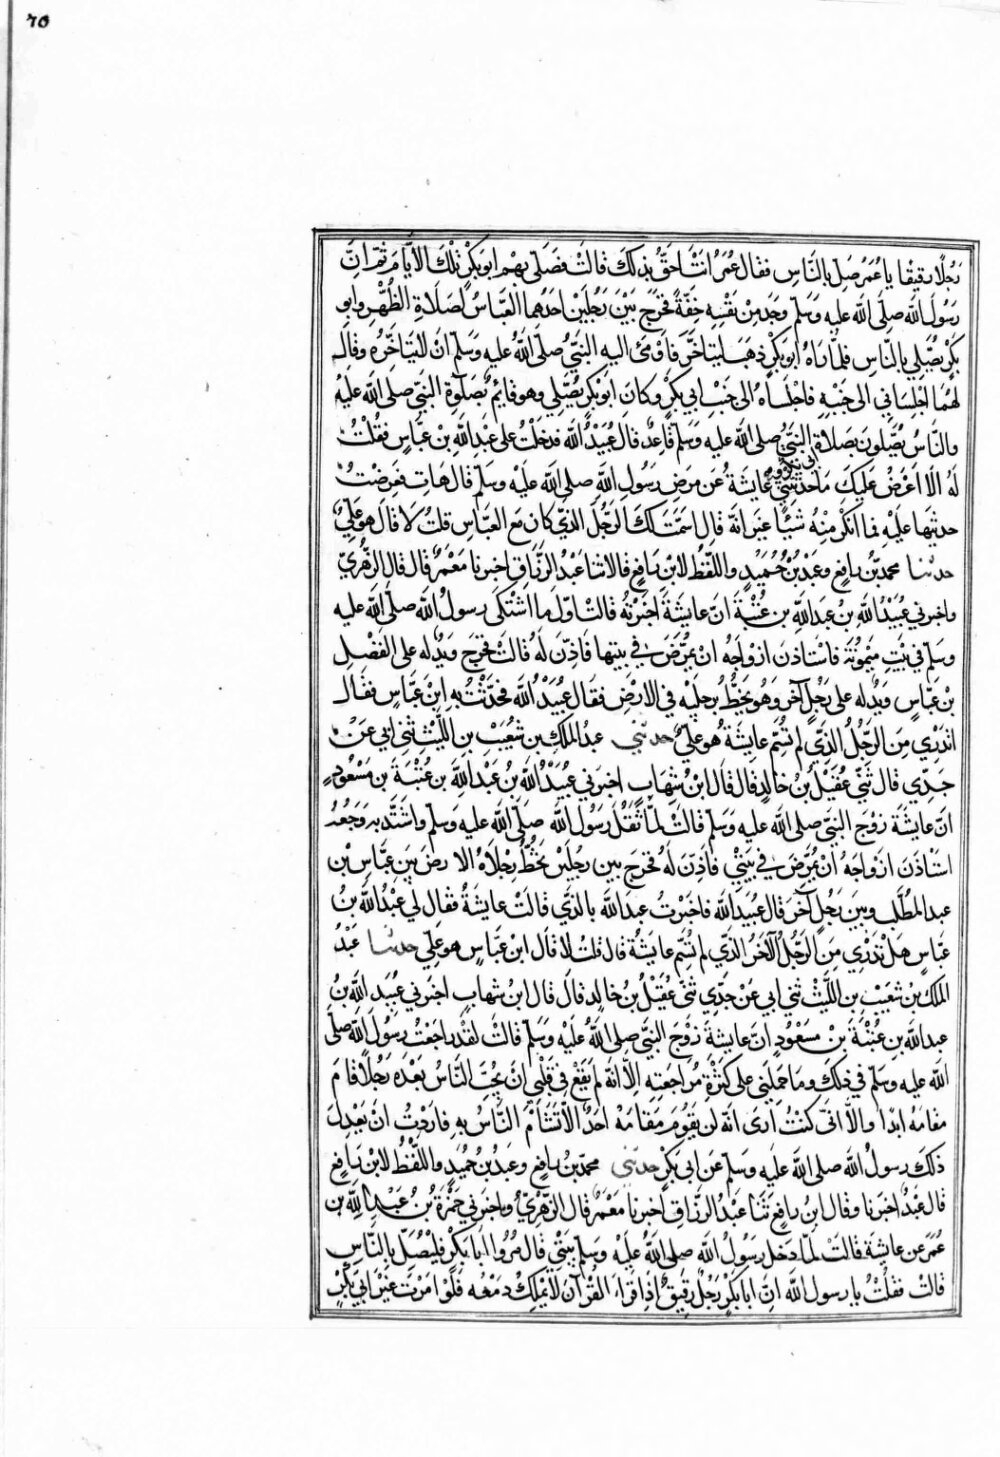 ٦٥
رَجُلًا رقيقا يا عُمَرُ صَلِّ بالنَّاسِ فقال عُمَرُ انْتَ احَقُّ بذلكَ قالتْ فصَلَّى بهم ابو بكرٍ تلكَ الأيَّامَ ثمّ انَّ
رَسُولَ الله صلى الله عليه وَسَلّم وَجَدَ مِنْ نَفْسِهِ خِفَّةً فخَرَجَ بَيْنَ رَجُلَيْنِ احَدُهما العَبَّاسُ لصَلاةِ الظُّهْرِ وابو
بَكْرٍ يُصَلِّي بالنَّاسِ فلمَّا رَاهُ ابو بَكْرٍ ذهَبَ ليتاخّرَ فاَوْمَئ اليه النبيُّ صلَّى اللهُ عليه وَسَلّم انْ لا يَتَاخَّرَ وقالَ
لهُمَا اجْلِسَانِي الى جَنْبِهِ فاجْلَسَاهُ الى جَنْبِ ابي بكْرٍ وكانَ ابو بَكْرٍ يُصَلِّي وهو قايِمٌ بصَلَوةِ النبيّ صلى الله عليْه
والنَّاسُ يُصَلونَ بصَلاةِ ابي بَكْرٍ والنبيُّ صلى الله عليه وَسَلّم قاعِدٌ قال عُبَيْدُ الله فدخلْتُ على عَبْدِ اللَّهِ بْنِ عَبَّاسٍ فقُلْتُ
لَهُ الَا اعْرِضُ عَلَيكَ مَا حَدَّثَتْنِي عايِشَةُ عَن مَرَضِ رَسُولِ اللَّهِ صلى الله عليْه وسَلّم قال هَاتِ فعَرَضْتُ
حديثَها عليْهِ فما انكَرَ مِنْهُ شَيْئًا غَيرَ انَّه قال اسَمَّتْ لكَ الرَّجُلَ الذي كان مَعَ العَبَّاسِ قلتُ لا قال هو عَليٌّ
حدثنا محمد بْنُ رافِعٍ وعَبْدُ بْنُ حُمَيْدٍ واللّفظُ لابْنِ رَافِعٍ قالا ثنا عَبْدُ الرَّزَّاقِ اخبرنا مَعْمَرٌ قال قال الزُّهْرِيّ
واخبرني عُبَيْدُ اللهِ بْنُ عَبدِ اللَّهِ بن عُتْبَةَ انّ عايِشَةَ اخبرَتْهُ قالتْ اوّلُ ما اشْتَكَى رسولُ الله صلَّى الله عليه
وسَلّم في بَيْتِ مَيْمُونَةَ فاسْتَاذَنَ ازْوَاجَهُ انْ يُمَرَّضَ في بيتِها فَاَذِنَّ لَهُ قالتْ فخرَجَ ويَدٌ له على الفَضْلِ
بْنِ عَبَّاسٍ ويَدٌ له على رَجُلٍ آخَرَ وهو يَخُطُّ برِجليْهِ في الارْضِ فقال عُبَيْدُ الله فحَدَّثْتُ به ابنَ عَبَّاسٍ فقالَ
اتدْرِي مَن الرَّجُلُ الذِي لم تُسَمِّ عايِشَةُ هُو عَليٌّ حدثني عبدُ الملكِ بن شُعَيْبِ بن اللَّيْثِ ثني ابي عَنْ
جَدِّي قال ثني عُقَيْلُ بْنُ خالِدٍ قال قال ابْنُ شِهَابٍ اخبرَني عُبَيْدُ الله بْنُ عَبْدِ اللَّهِ بن عُتْبَةَ بن مَسْعُودٍ
انّ عايِشَةَ زَوْجَ النبيّ صلى الله عليه وَسَلّم قالتْ لمّا ثَقُلَ رَسُولُ الله صَلّى الله عليه وسَلّم واشتَدَّ به وَجَعُهُ
اسْتَاذَنَ ازْوَاجَهُ انْ يُمَرَّضَ في بيْتي فَاَذِنَّ لَهُ فخرَجَ بين رجُليْنِ تخُطُّ رِجْلاهُ الارضَ بَينَ عبَّاسِ بْن
عبد المطَّلبِ وبينَ رَجُلٍ آخَرَ قال عُبَيدُ الله فاخبَرْتُ عبدَ الله بالذي قالتْ عايشَةُ فقال لي عبْدُ الله بنُ
عبَّاسٍ هَل تَدْرِي مَنِ الرَّجُلُ الآخَرُ الذِي لم تُسَمِّ عايشَةُ قال قلتُ لا قال ابن عَبَّاسٍ هو عَليّ حدثنا عَبْدُ
الملك بْنُ شُعَيْبِ بن اللَّيْثِ ثني ابي عَنْ جدِّي ثني عُقَيْلُ بْنُ خالِدٍ قال قال ابنُ شهابٍ اخبرني عُبَيْد الله بْنُ
عبد الله بنِ عُتْبَةَ بْنِ مسَعُودٍ انّ عايِشَةَ زَوْجَ النبيّ صلى اللهُ عليْه وَسَلّم قالتْ لقدْ راجَعْتُ رسُولَ اللّه صلّى
الله عليه وسلّم في ذلك وما حَمَلَني على كَثْرَةِ مُرَاجَعتِهِ إلّا انّه لم يَقَعْ في قلْبِي انْ يُحِبَّ النَّاسُ بَعْدَه رَجُلًا قامَ
مقامَهُ ابدًا والّا انّي كنْتُ اَرَى انّه لن يقُومَ مَقامَهُ احَدٌ الّا تَشَاءَمَ النَّاسُ به فارَدْتُ انْ يَعْدِلَ
ذلكَ رسولُ الله صلى الله عليه وسَلّم عَن ابي بَكْرٍ حدثني محمدُ بنُ رافِعٍ وعبدُ بْنُ حُمَيدٍ واللّفظُ لابْن رَافِعٍ
قال عَبْدٌ اخبَرَنا وقال ابنُ رافِعٍ ثَنا عَبْدُ الرَّزَّاقِ اخبرنا مَعْمَرٌ قال الزُّهْرِيُّ واخبرني حَمْزَةُ بْنُ عَبْدِ اللَّهِ بن
عُمَرَ عن عايِشَةَ قالتْ لمّا دَخل رَسُولُ الله صلى اللهُ عليْه وَسَلّم بيتي قال مُرُوا ابَا بَكْرٍ فليُصَلِّ بالنَّاسِ
قالتْ فقلْتُ يا رسولَ اللَّهِ انّ ابا بَكْرٍ رَجُلٌ رقِيقٌ اذا قرَأ القُرآنَ لا يَمْلِكُ دَمْعَه فلوْ امَرْتَ غيْرَ ابي بَكْرٍ